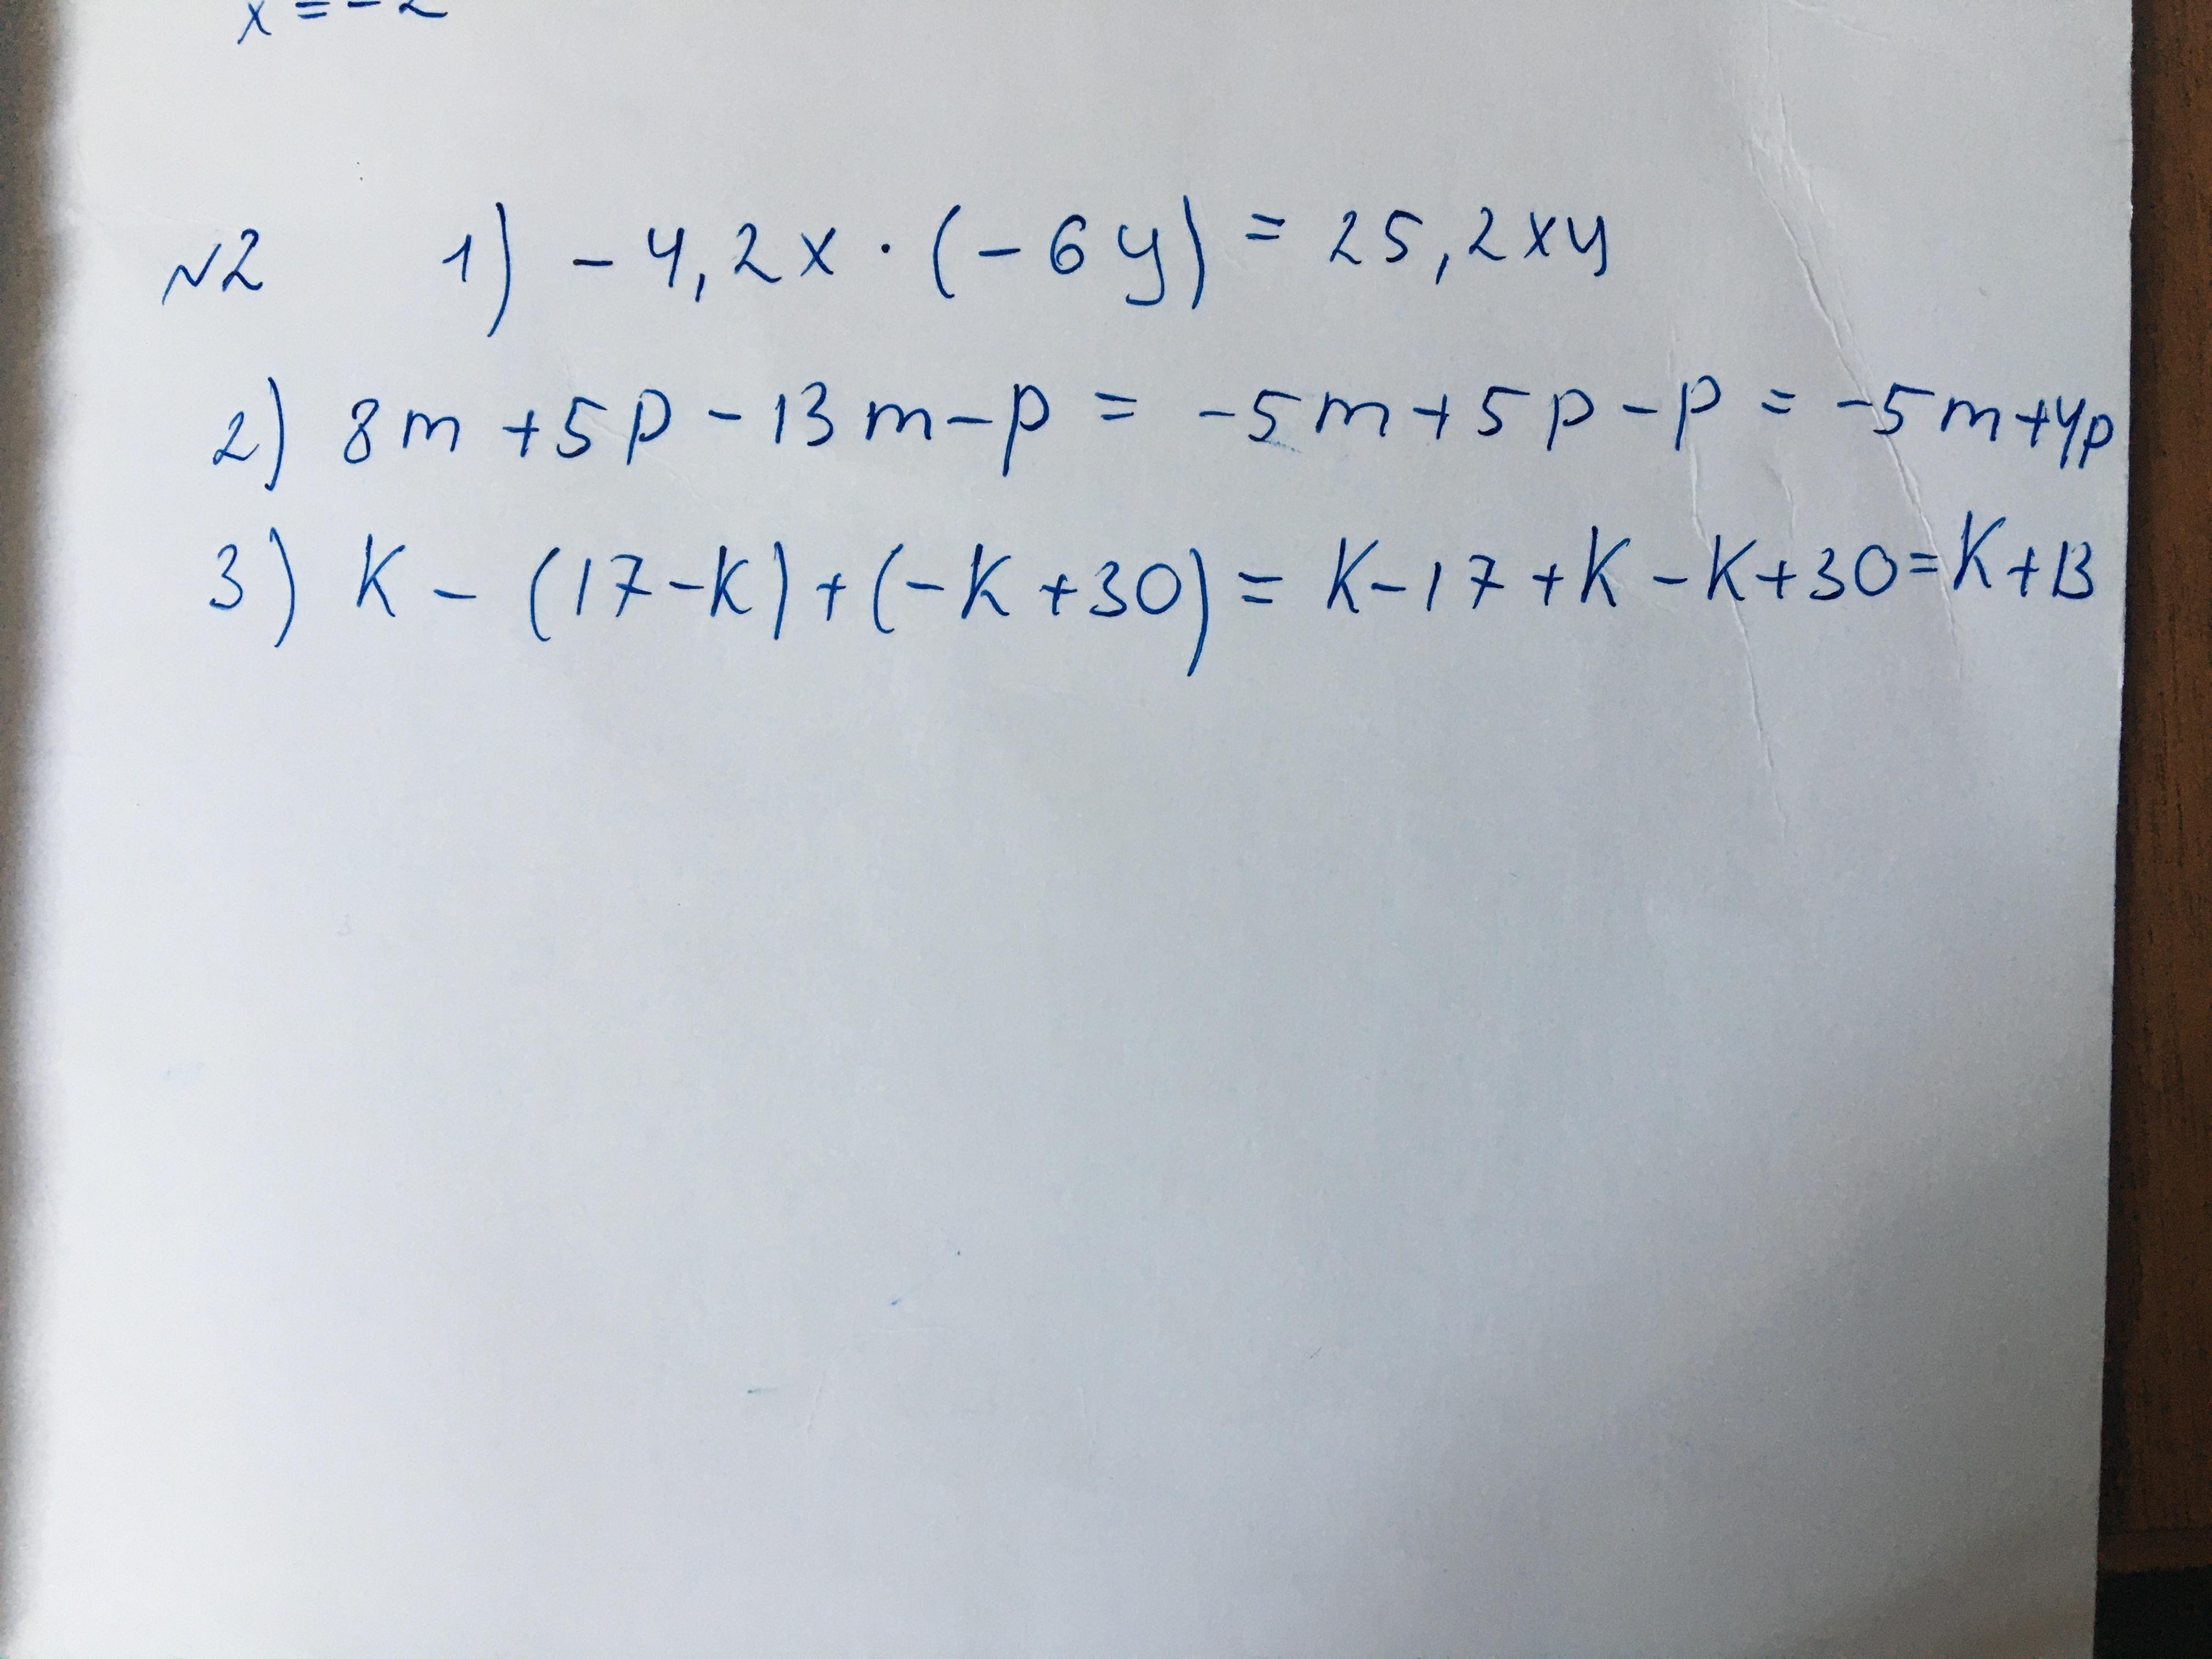 x = -2
№2 1) - 4,2x · (-6y) = 25,2xy
2) 8m + 5p - 13m - p = -5m + 5p - p = -5m + 4p
3) K - (17 - K) + (-K + 30) = K - 17 + K - K + 30 = K + 13